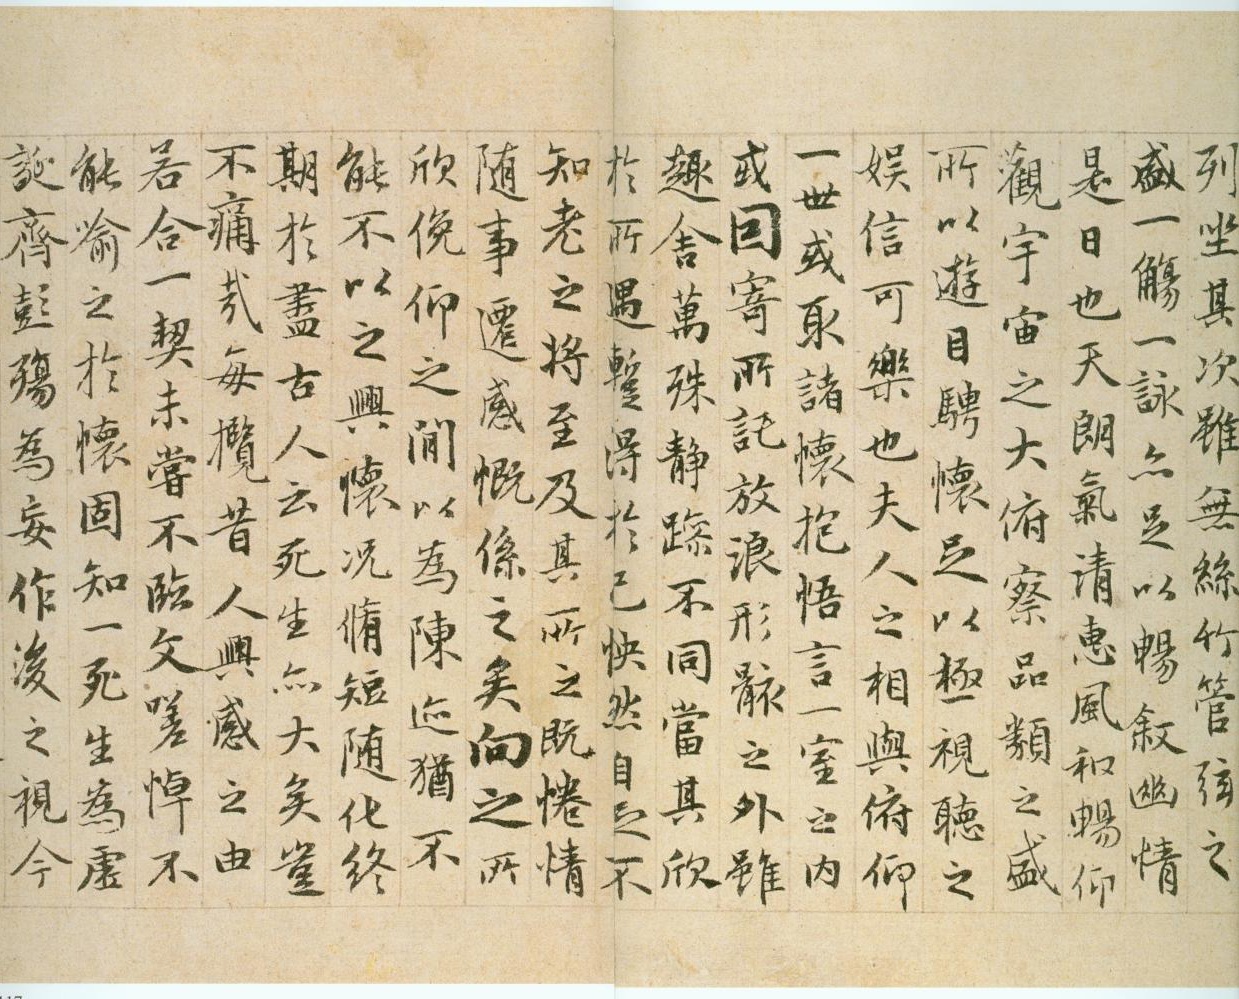 列坐其次雖無絲竹管弦之
盛一觴一詠亦足以暢敘幽情
是日也天朗氣清惠風和暢仰
觀宇宙之大俯察品類之盛
所以遊目騁懷足以極視聽之
娛信可樂也夫人之相與俯仰
一世或取諸懷抱悟言一室之內
或因寄所託放浪形骸之外雖
趣舍萬殊靜躁不同當其欣
於所遇蹔得於己怏然自足不
知老之將至及其所之既惓情
隨事遷感慨係之矣向之所
欣俛仰之閒以為陳迹猶不
能不以之興懷況脩短隨化終
期於盡古人云死生亦大矣豈
不痛哉每攬昔人興感之由
若合一契未嘗不臨文嗟悼不
能喻之於懷固知一死生為虛
誕齊彭殤為妄作後之視今
117